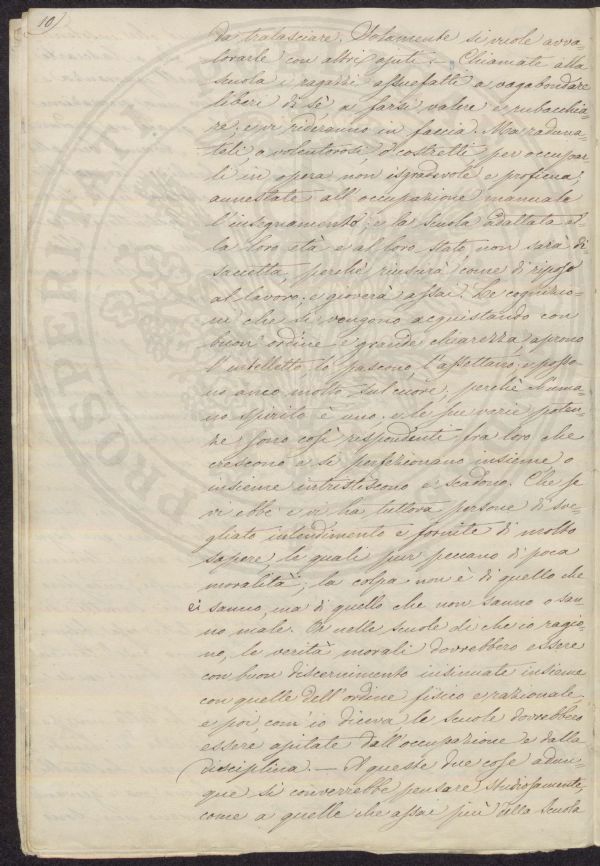 10)
da tralasciare. Solamente si vuole avva-
lorarle con altri ajuti. – Chiamate alla
scuola i ragazzi assuefatti a vagabondare
liberi di sè, a farsi valere e rubacchia-
re, e vi rideranno in faccia. Ma raduna-
teli, o volentorosi, o costretti per occupar
li in opera non isgradevole e proficua,
annestate all'occupazione manuale
l'insegnamento; e la scuola adattata al-
la loro età e al loro stato, non sarà di
saccetta, perchè riuscirà come di riposo
al lavoro; e gioverà assai. Le cognizio-
ni che si vengono acquistando con
buon ordine e grande chiarezza, aprono
l'intelletto, lo pascono, l'assettano, e posso-
no anco molto sul cuore, perchè l'uma-
no spirito è uno, e le sue varie poten-
ze sono così rispondenti fra loro che
crescono e si perfezionano insieme o
insieme intristiscono e scadono. Che se
vi ebbe e vi ha tuttora persone di sve-
gliato intendimento e fornite di molto
sapere, le quali pur peccano di poca
moralità; la colpa non è di quello che
ei sanno, ma di quello che non sanno o san-
no male. Or nelle scuole di che io ragio-
no, le verità morali dovrebbero essere
con buon discernimento insinuate insieme
con quelle dell'ordine fisico e razionale,
e poi, com'io diceva le scuole dovrebbero
essere ajutate dall'occupazione e dalla
disciplina. – A queste due cose adun-
que si converrebbe pensare studiosamente,
come a quelle che assai più della scuola
PROSPERITATI